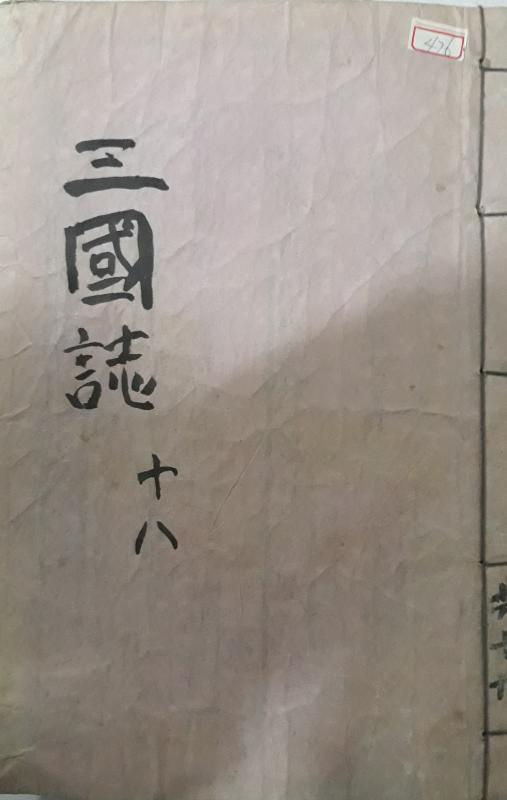 426
三國誌
十八